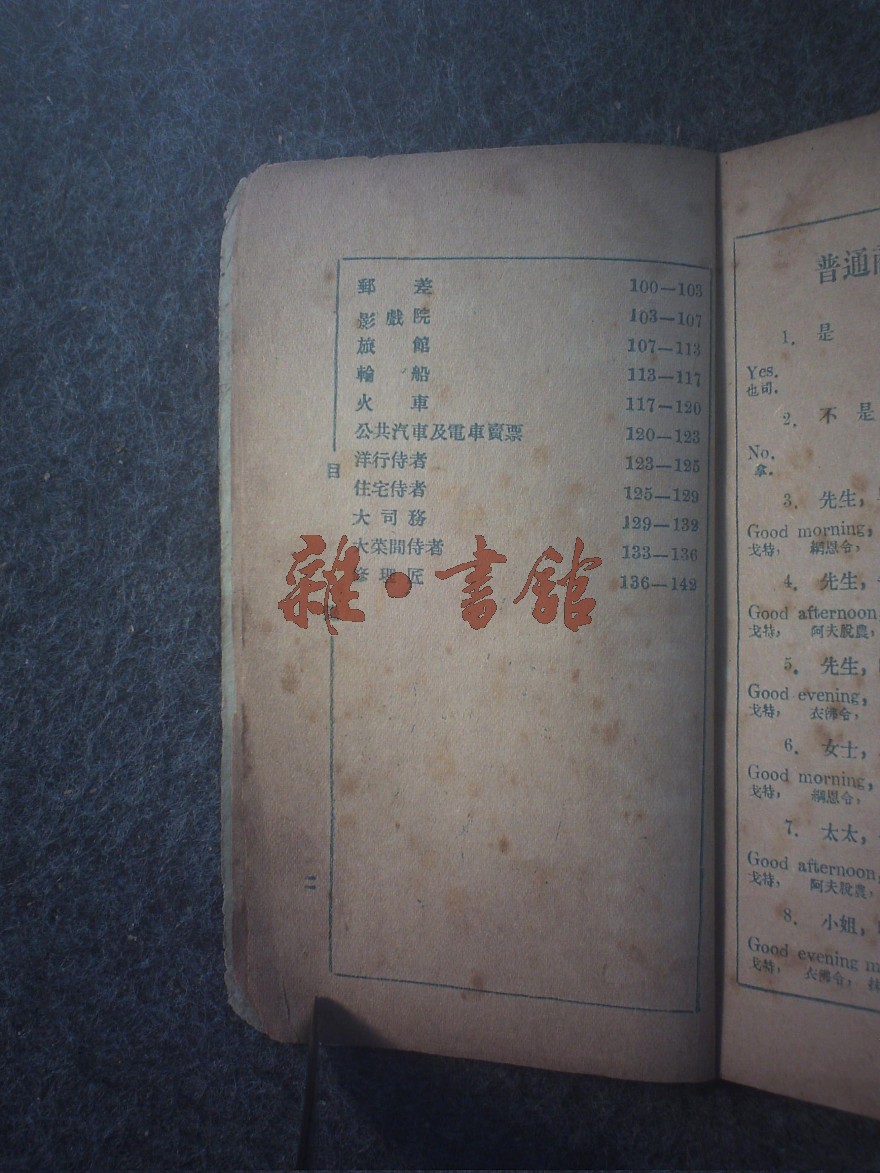 郵差 100—103
影戲院 103—107
旅館 107—113
輪船 113—117
火車 117—120
公共汽車及電車賣票 120—123
洋行侍者 123—125
住宅侍者 125—129
大司務 129—132
大菜間侍者 133—136
修理匠 136—142
目
二
雜·書館
普通
1. 是
Yes.
也司.
2. 不是
No.
拿.
3. 先生,
Good morning,
戈特, 綢恩令,
4. 先生,
Good afternoon,
戈特, 阿夫脫農,
5. 先生,
Good evening,
戈特, 衣佛令,
6. 女士,
Good morning,
戈特, 綢恩令,
7. 太太,
Good afternoon,
戈特, 阿夫脫農,
8. 小姐,
Good evening m
戈特, 衣佛令,